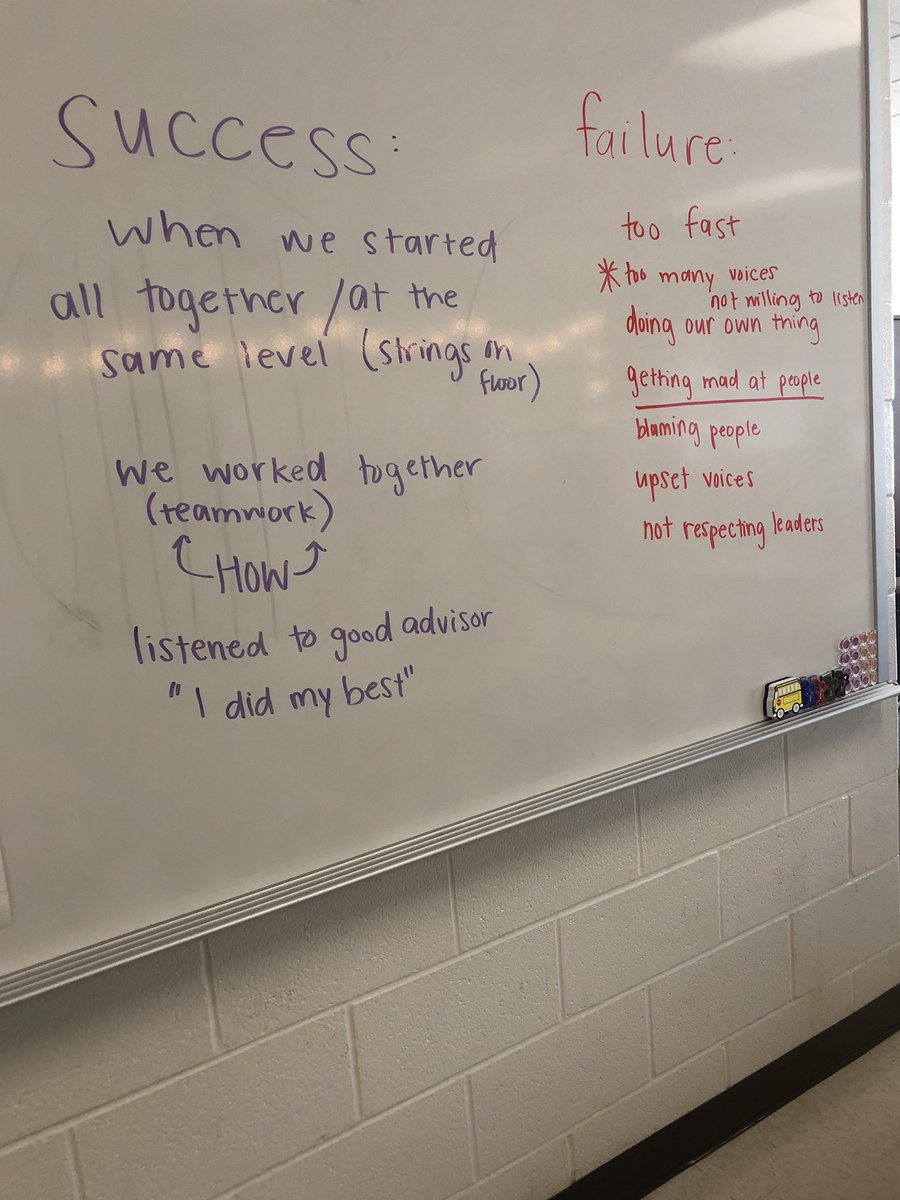 Success:
when we started
all together /at the
same level (strings on
floor)
we worked together
(teamwork)
HOW
listened to good advisor
"I did my best"
failure:
too fast
*too many voices
not willing to listen
doing our own thing
getting mad at people
blaming people
upset voices
not respecting leaders